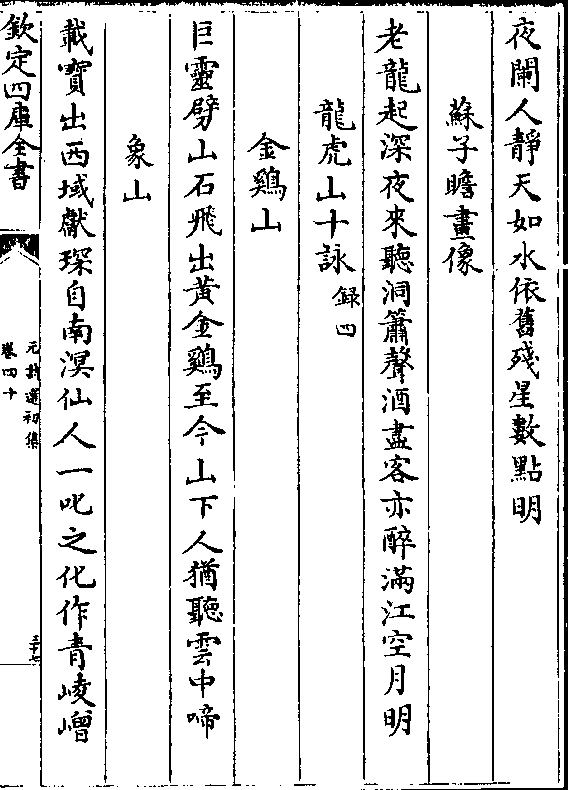 夜闌人靜天如水依舊殘星數點明
蘇子瞻畫像
老龍起深夜來聽洞簫聲酒盡客亦醉滿江空月明
龍虎山十詠錄四
金鷄山
巨靈劈山石飛出黃金鷄至今山下人猶聽雲中啼
象山
載寶出西域獻琛自南溟仙人一叱之化作青崚嶒
欽定四庫全書
元詩選初集
卷四十
三十七